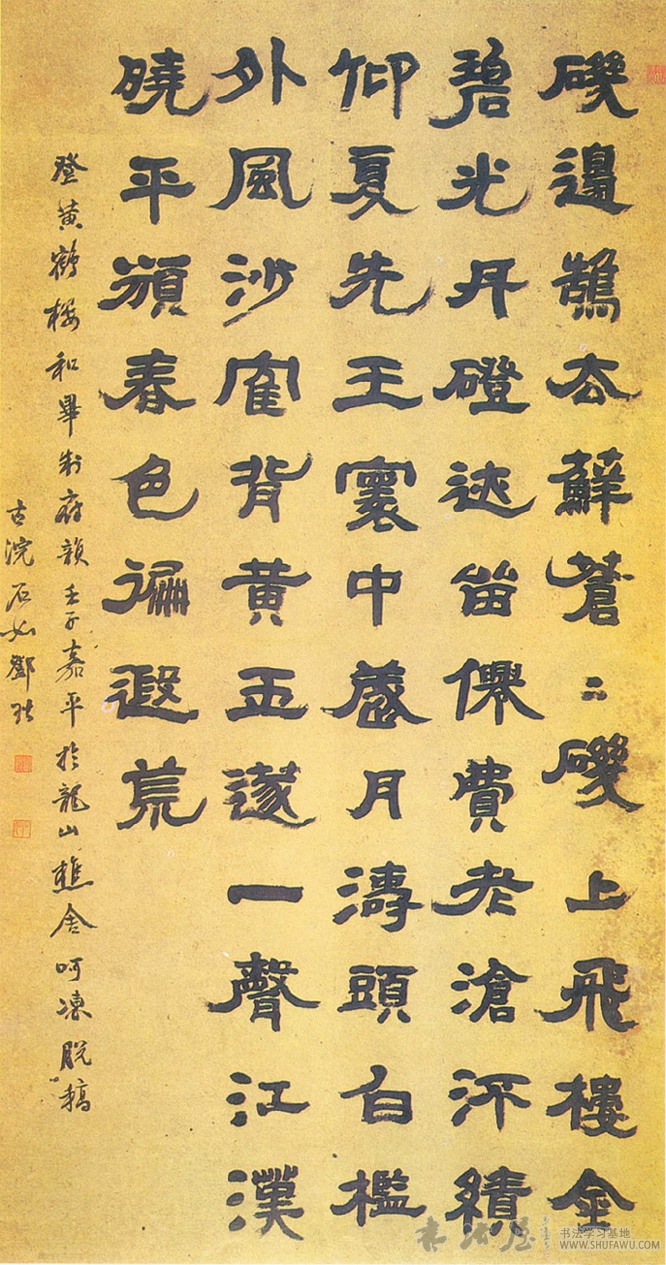 磯邊鵠去蘚蒼〻磯上飛樓金
碧光丹磴迹留僊費老滄沔績
仰夏先王寰中歲月濤頭白檻
外風沙隺背黄玉篴一聲江漢
曉平頒春色徧遐荒
登黄鶴樓和畢制府韻壬子嘉平於龍山樵舍呵凍脱稿
古浣石如鄧琰
书法学习基地
WWW.SHUFAWU.COM